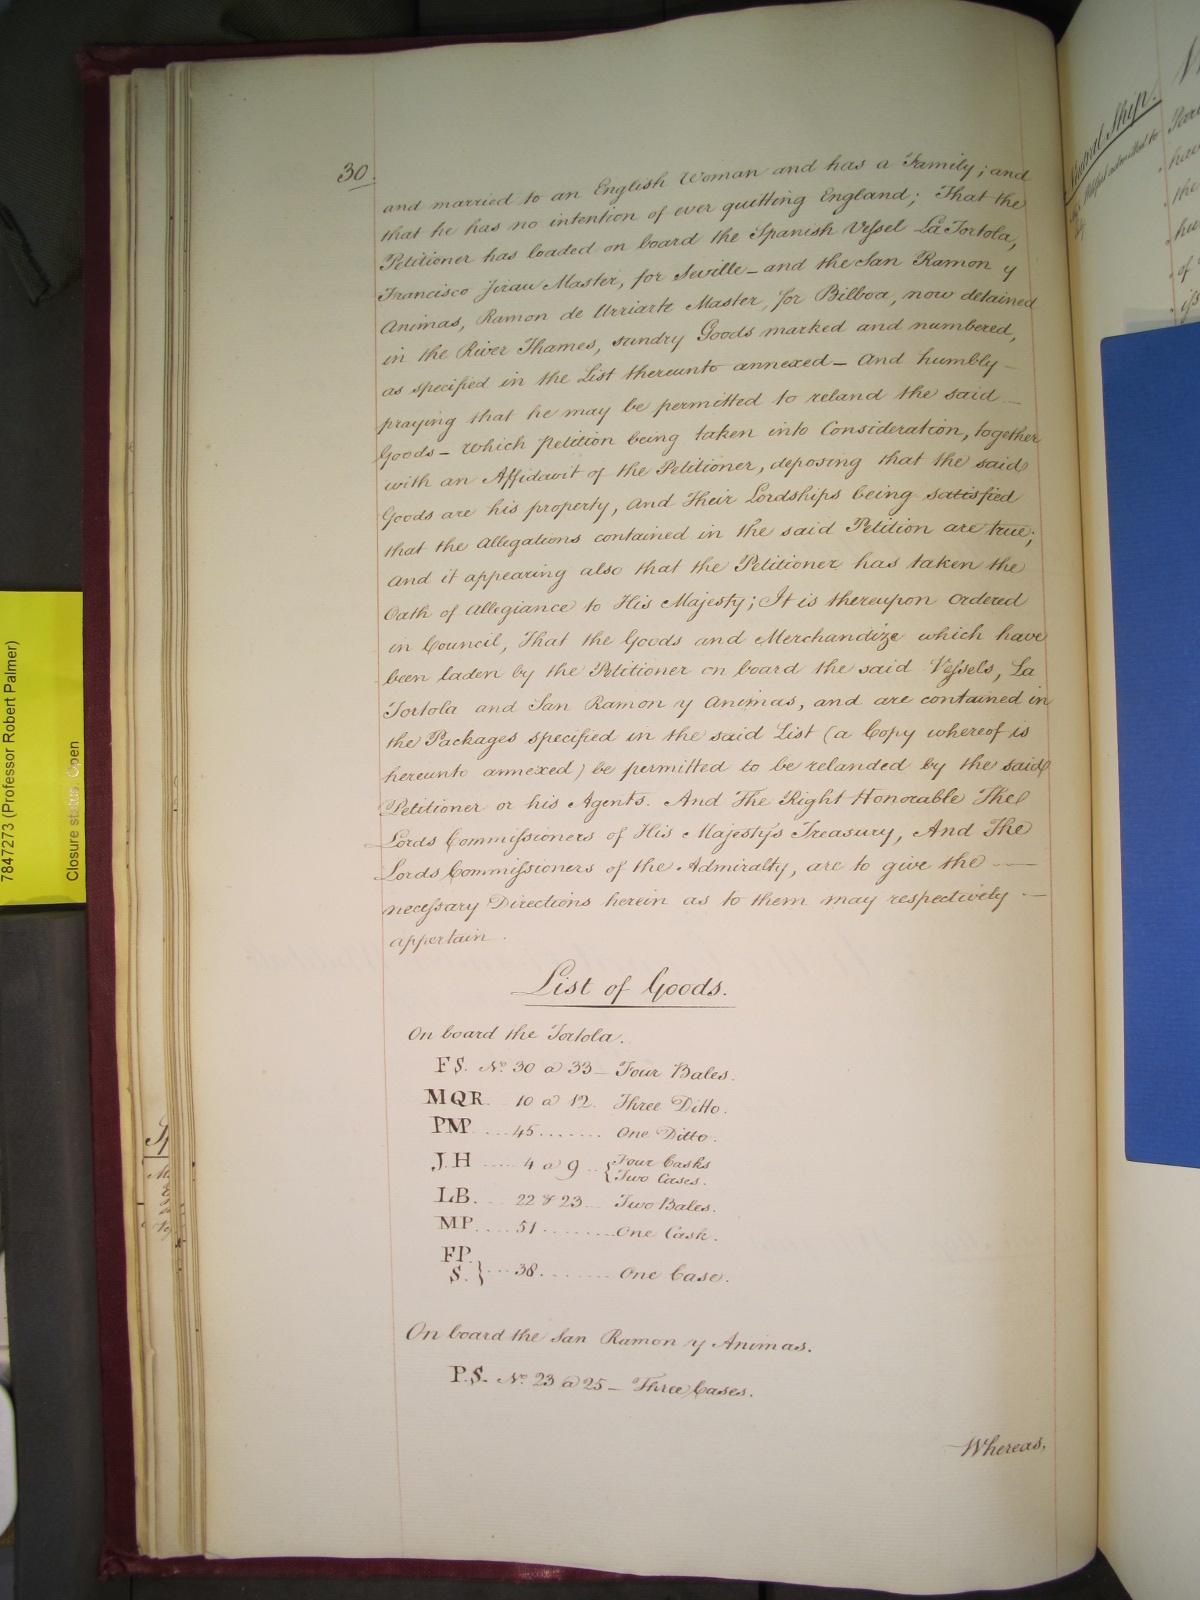 30.
and married to an English Woman and has a Family; and
that he has no intention of ever quitting England; That the
Petitioner has loaded on board the Spanish Vessel La Tortola,
Francisco Jirau Master, for Seville — and the San Ramon y
Animas, Ramon de Urriarte Master, for Bilboa, now detained
in the River Thames, sundry Goods marked and numbered,
as specified in the List thereunto annexed — And humbly —
praying that he may be permitted to reland the said —
Goods — Which Petition being taken into Consideration, together
with an Affidavit of the Petitioner, deposing that the said
Goods are his property, and Their Lordships being satisfied
that the Allegations contained in the said Petition are true;
and it appearing also that the Petitioner has taken the
Oath of Allegiance to His Majesty; It is thereupon ordered
in Council, That the Goods and Merchandize which have
been laden by the Petitioner on board the said Vessels, La
Tortola and San Ramon y Animas, and are contained in
the Packages specified in the said List (a Copy whereof is
hereunto annexed) be permitted to be relanded by the said
Petitioner or his Agents. And The Right Honorable The
Lords Commissioners of His Majesty's Treasury, And The
Lords Commissioners of the Admiralty, are to give the —
necessary Directions herein as to them may respectively —
appertain.
List of Goods.
On board the Tortola.
FS. No. 30 a 33 — Four Bales.
MQR. 10 a 12. Three Ditto.
PM ... 45 ....... One Ditto.
J.H ..... 4 a 9 .. { Four Casks
Two Cases.
LB. ... 22 & 23 ... Two Bales.
MP .... 51 ........ One Cask.
FP.
S. } ... 38 ........ One Case.
On board the San Ramon y Animas.
P.S. No. 23 a 25 — Three Cases.
Whereas,
7847273 (Professor Robert Palmer)
Closure status: Open
Ship.
admitted to